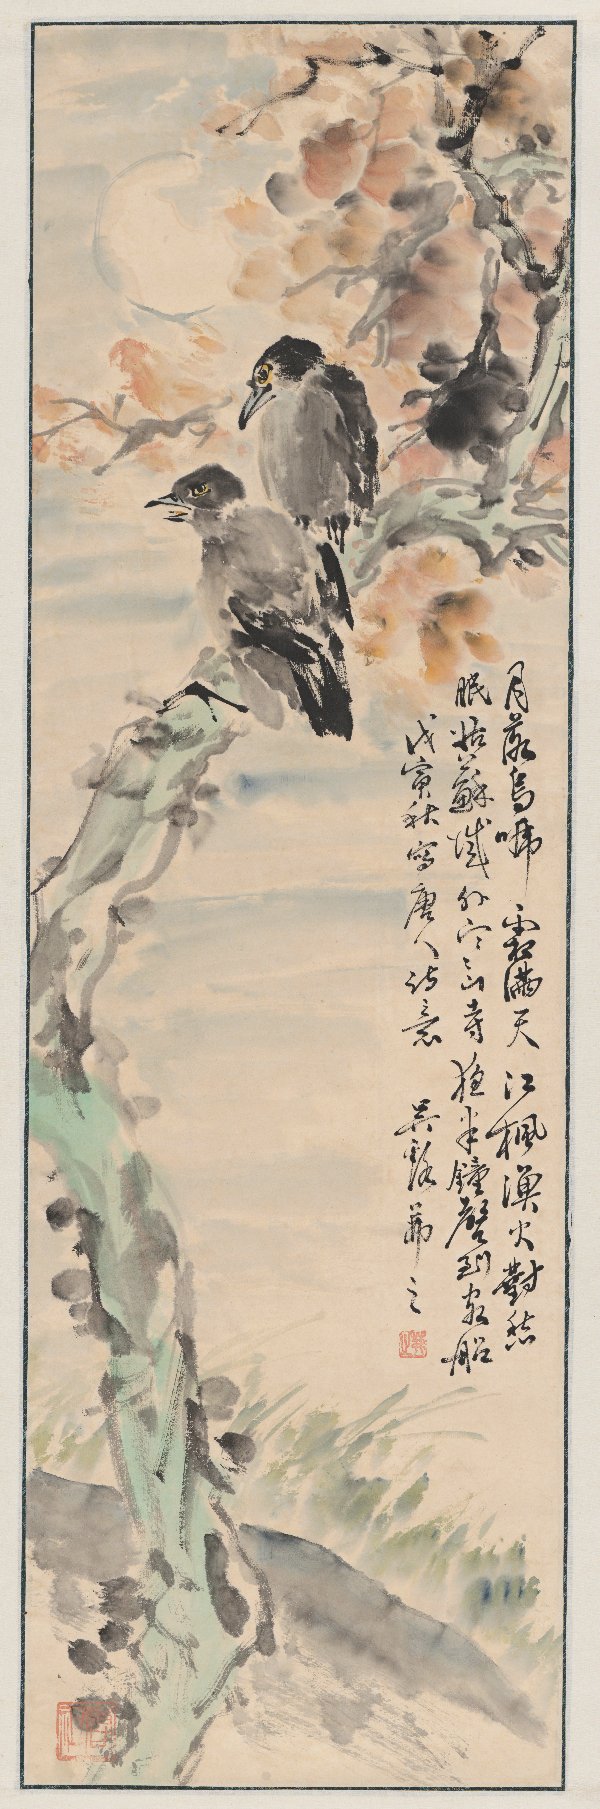 月落烏啼霜滿天江楓漁火對愁
眠姑蘇城外寒山寺夜半鐘聲到客船
戊寅秋寫唐人詩意 吳谿茀之